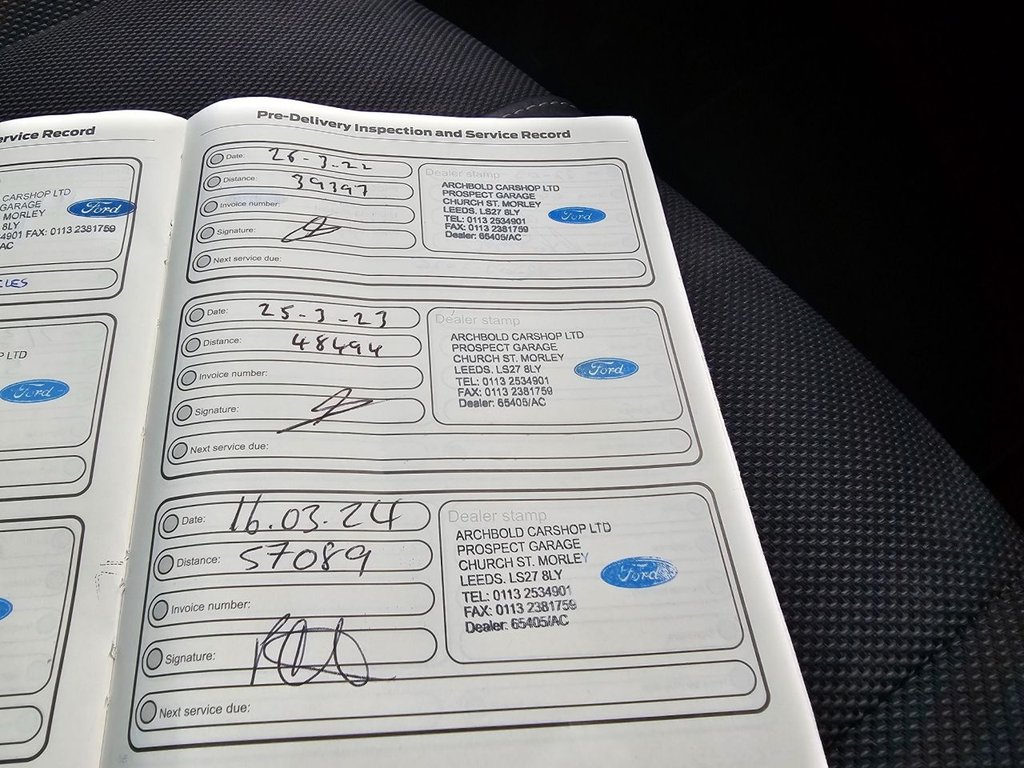 ervice Record
CARSHOP LTD
GARAGE
MORLEY
8LY
4901 FAX: 0113 2381759
AC
Ford
CLES
LTD
Ford
Pre-Delivery Inspection and Service Record
Date: 26-3-22
Distance: 39397
Invoice number:
Signature:
Next service due:
Dealer stamp
ARCHBOLD CARSHOP LTD
PROSPECT GARAGE
CHURCH ST. MORLEY
LEEDS. LS27 8LY
TEL: 0113 2534901
FAX: 0113 2381759
Dealer: 65405/AC
Ford
Date: 25-3-23
Distance: 48494
Invoice number:
Signature:
Next service due:
Dealer stamp
ARCHBOLD CARSHOP LTD
PROSPECT GARAGE
CHURCH ST. MORLEY
LEEDS. LS27 8LY
TEL: 0113 2534901
FAX: 0113 2381759
Dealer: 65405/AC
Ford
Date: 16.03.24
Distance: 57089
Invoice number:
Signature:
Next service due:
Dealer stamp
ARCHBOLD CARSHOP LTD
PROSPECT GARAGE
CHURCH ST. MORLEY
LEEDS. LS27 8LY
TEL: 0113 2534901
FAX: 0113 2381759
Dealer: 65405/AC
Ford